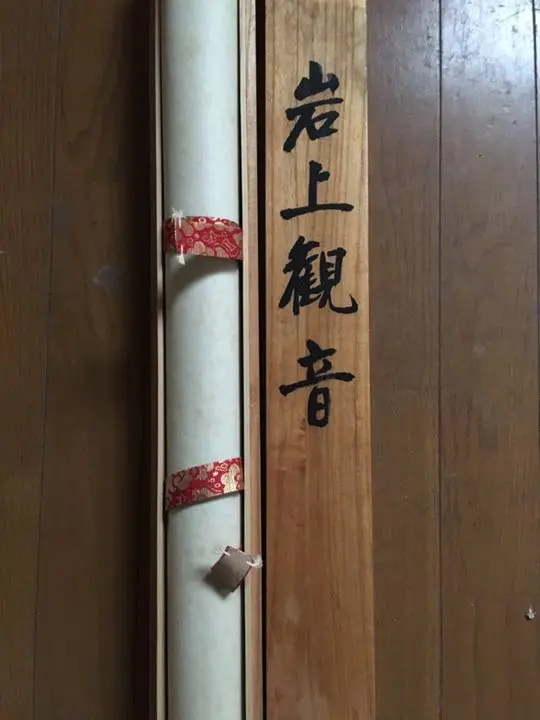 岩上観音